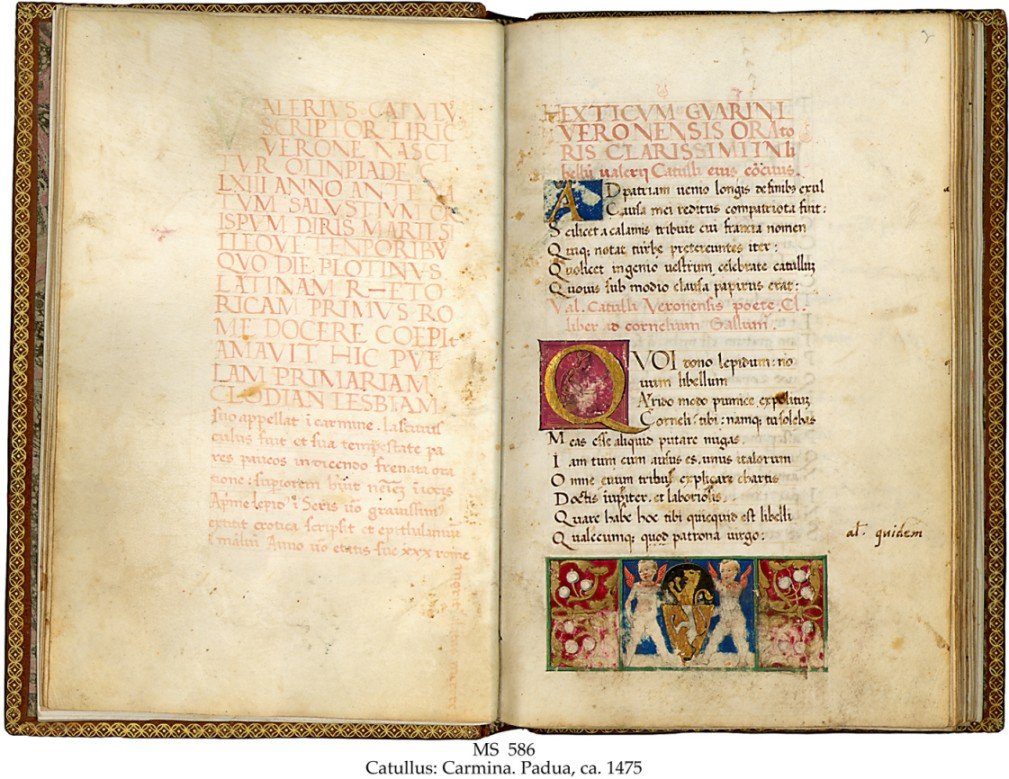 VALERIVS CATVLV
SCRIPTOR LIRIC
VERONE NASCI
TVR OLINPIADE C
LXIII ANNO ANTE NA
TVM SALVSTIVM CR
ISPVM DIRIS MARII S
ILEQVE TENPORIBV
QVO DIE PLOTINVS
LATINAM RETO
RICAM PRIMVS RO
ME DOCERE COEPIt
AMAVIT HIC PVE
LLAM PRIMARIAM
CLODIAN LESBIAM
suo appellat ī carmine. lasciuus
culus fuit et sua tempestate pa
res paucos in dicendo frenata ora
tione: supiorem huit in iocis
Apme lepid ī Seris uo grauissim
extitit erotica scripsit et epithalamiu
Anno uo etatis sue xxx rome
2
HEXTICVM GVARINI
VERONENSIS ORAto
RIS CLARISSIMI IN li
bellū ualerij Catulli eius cōciuis.
AD patriam uenio longis de finibus exul
Causa mei reditus compatriota fuit:
Scilicet a calamis tribuit cui francia nomen
Quiq; notat turbe pretereuntis iter:
Quo licet ingenio uestrum celebrate catullū
Quouis sub modio clausa papirus erat:
Val. Catulli Veronensis poete. Cl.
liber ad cornelium Gallum.
QVOI dono lepidum: no
uum libellum
Arido modo pumice expolitū
Corneli: tibi: namq; tu solebas
Meas esse aliquid putare nugas.
Iam tum cum ausus es. unus italorum
Omne euum tribus explicare chartis
Doctis iupiter. et laboriosis.
Quare habe hoc tibi quicquid est libelli
Qualecumq; quod patrona uirgo:
al. quidem
MS 586
Catullus: Carmina. Padua, ca. 1475